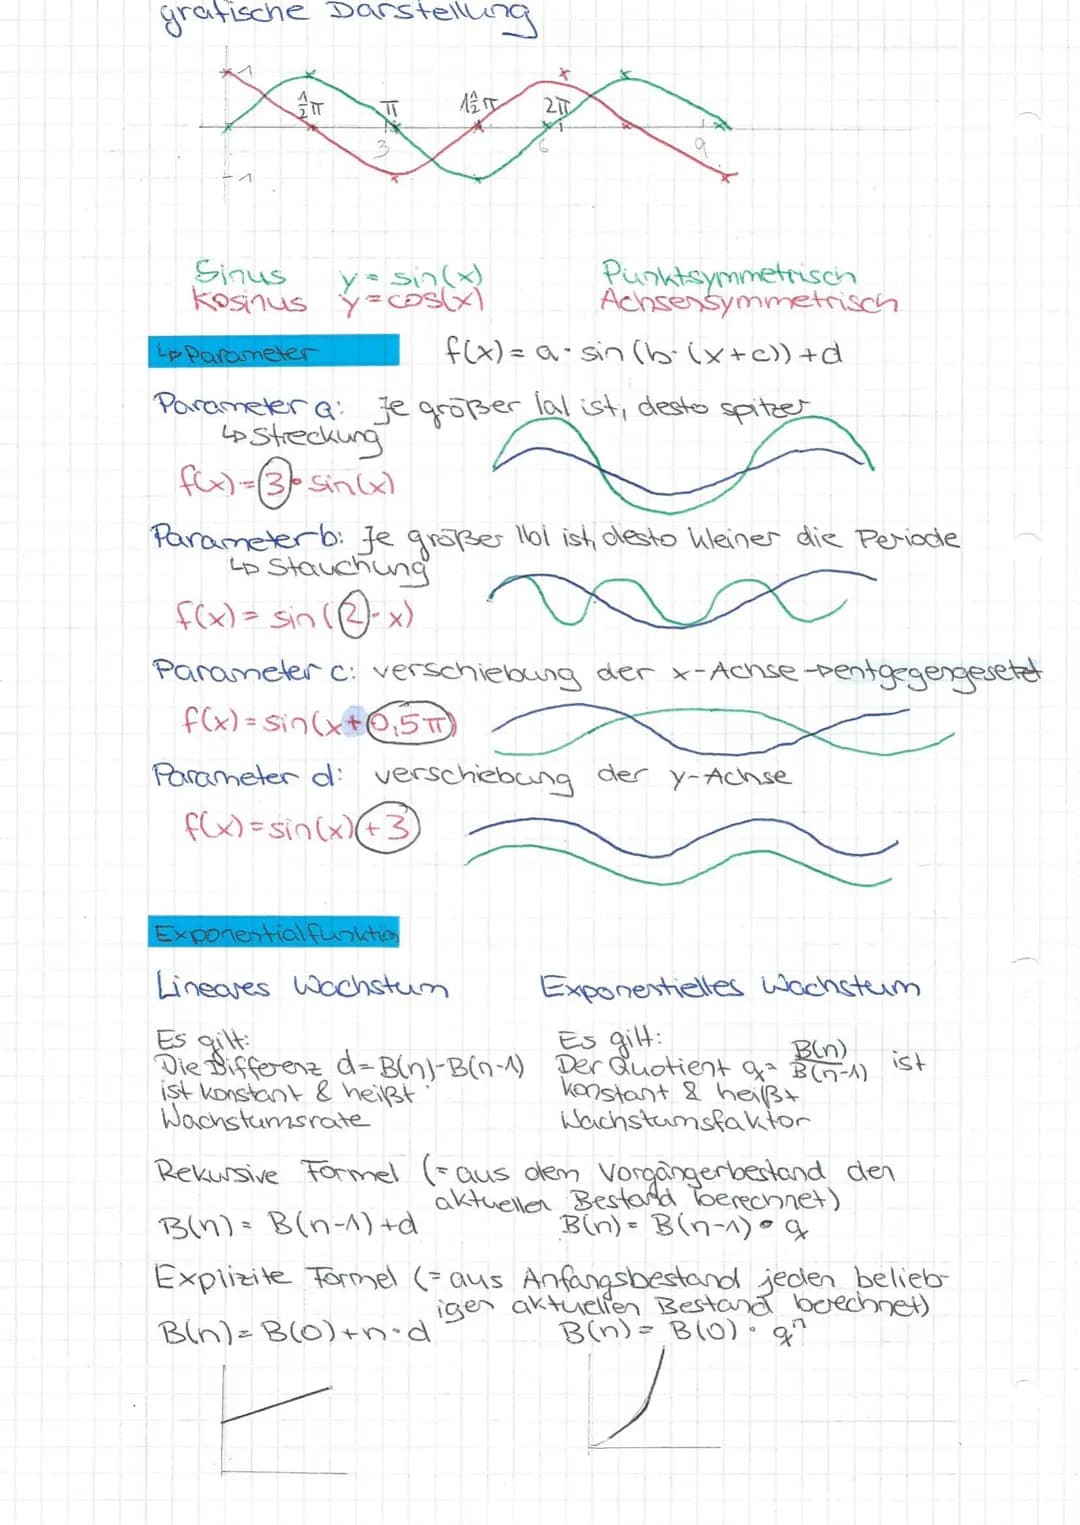 grafische Darstellung
1
½π π 1½π 2π
3 6 9
-1
Sinus y = sin(x) Punktsymmetrisch
Kosinus y = cos(x) Achsensymmetrisch
↳ Parameter f(x) = a · sin (b · (x+c)) + d
Parameter a: Je größer |a| ist, desto spitzer
↳ Streckung
f(x) = 3 · sin(x)
Parameter b: Je größer |b| ist, desto kleiner die Periode
↳ Stauchung
f(x) = sin (2 · x)
Parameter c: verschiebung der x-Achse → entgegengesetzt
f(x) = sin(x + 0,5π)
Parameter d: verschiebung der y-Achse
f(x) = sin(x) + 3
Exponentialfunktion
Lineares Wachstum Exponentielles Wachstum
Es gilt: Es gilt:
Die Differenz d = B(n) - B(n-1) Der Quotient q = B(n)/B(n-1) ist
ist konstant & heißt konstant & heißt
Wachstumsrate Wachstumsfaktor
Rekursive Formel (= aus dem Vorgängerbestand den
aktuellen Bestand berechnet)
B(n) = B(n-1) + d B(n) = B(n-1) · q
Explizite Formel (= aus Anfangsbestand jeden belieb-
igen aktuellen Bestand berechnet)
B(n) = B(0) + n · d B(n) = B(0) · qⁿ